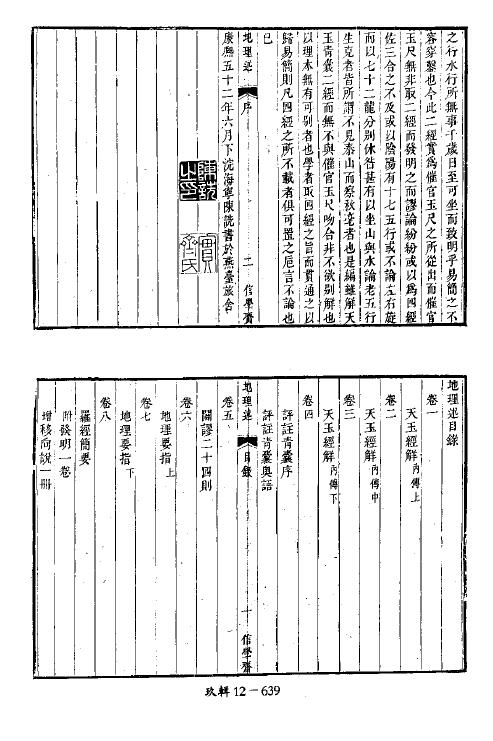 之行水行所無事千歲日至可坐而致明乎易簡之不
容穿鑿也今此二經實為催官玉尺之所從出而催官
玉尺無非取二經而發明之而謬論紛紛或以為四經
佐三合之不及或以陰陽有十七五行或不論左右旋
而以七十二龍分別休咎甚有以坐山與水論老五行
生克者皆所謂不見泰山而察秋毫者也是編雖解天
玉青囊二經而無不與催官玉尺吻合非不欲別解也
以理本無有可別者也學者取四經之旨而貫通之以
歸易簡則凡四經之所不載者俱可置之卮言不論也
已
地理述 序 二 信學齋
康熙五十二年六月下浣海寧陳詵書於燕臺旅舍
地理述目錄
卷一
天玉經解內傳上
卷二
天玉經解內傳中
卷三
天玉經解內傳下
卷四
評註青囊序
評註青囊奧語
地理述 目錄 一 信學齋
卷五
闢謬二十四則
卷六
地理要指上
卷七
地理要指下
卷八
羅經簡要
附發明一卷
增移向說一冊
玖輯12－639